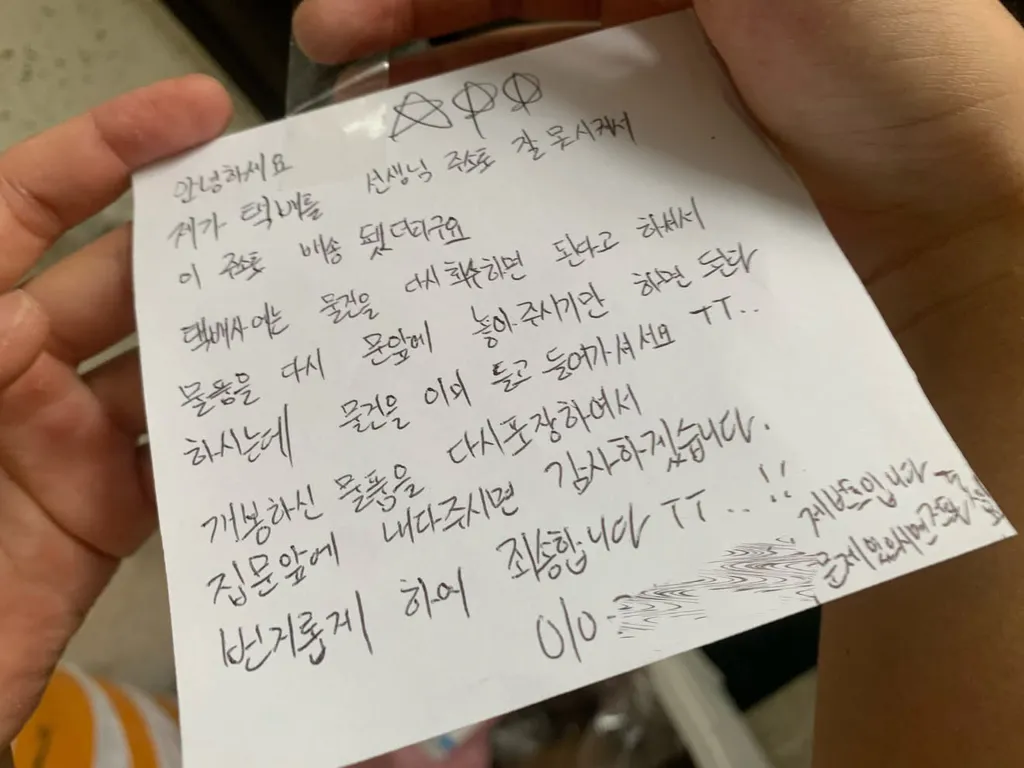 안녕하세요
제가 택배를 선생님 주소로 잘못시켜서
이 주소로 배송 됐더라구요
택배사에는 물건을 다시 회수하면 된다고 하셔서
물품을 다시 문앞에 놓아주시기만 하면 된다
하시는데 물건을 이미 들고 들어가셔서요 TT..
개봉하신 물품을 다시포장하여서
집문앞에 내다주시면 감사하겠습니다.
번거롭게 하여 죄송합니다 TT.. !!
010- 제번호입니다
문제있으시면